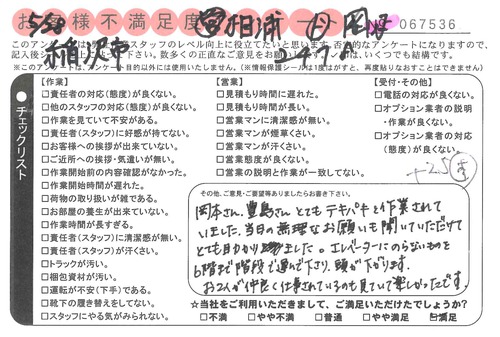 お客様不満足度
No 067536
このアンケートは
スタッフのレベル向上に役立てたいと思います。否定的なアンケートになりますので、
ください。数多くの正直なご意見をお願いいたします。
は、いくつでも結構です。
※このアンケートは、アンケート目的以外には使用いたしません。(※情報保護シールは1度はがすと、再度貼りなおすことはできません)
チェックリスト
【作業】
□責任者の対応(態度)が良くない。
□他のスタッフの対応(態度)が良くない。
□作業を見ていて不安がある。
□責任者(スタッフ)に好感が持てない。
□お客様への挨拶が出来ていない。
□ご近所への挨拶・気遣いが無い。
□作業開始前の内容確認がなかった。
□作業開始時間が遅れた。
□荷物の取り扱いが雑である。
□お部屋の養生が出来ていない。
□作業時間が長すぎる。
□責任者(スタッフ)に清潔感が無い。
□責任者(スタッフ)が汗くさい。
□トラックが汚い。
□梱包資材が汚い。
□運転が不安(下手)である。
□靴下の履き替えをしてない。
□スタッフにやる気がみられない。
【営業】
□見積もり時間に遅れた。
□見積もり時間が長い。
□営業マンに清潔感が無い。
□営業マンが煙草くさい。
□営業マンが汗くさい。
□営業態度が良くない。
□営業の説明と作業が一致してない。
【受付・その他】
□電話の対応が良くない。
□オプション業者の説明
・作業が良くない。
□オプション業者の対応
(態度)が良くない。
+25
その他、ご意見・ご要望等ありましたらお書き下さい。
岡本さん、豊島さんとてもテキパキと作業されて
いました。当日の無理なお願いも聞いていただけて
とても助かりました。エレベーターにのらないものを
6階まで階段で運んで下さり、頭が下がります。
お2人が仲良く仕事されているのも見ていて楽しかったです。
☆当社をご利用いただきまして、ご満足いただけたでしょうか?
□不満 □やや不満 □普通 □やや満足 ☑満足